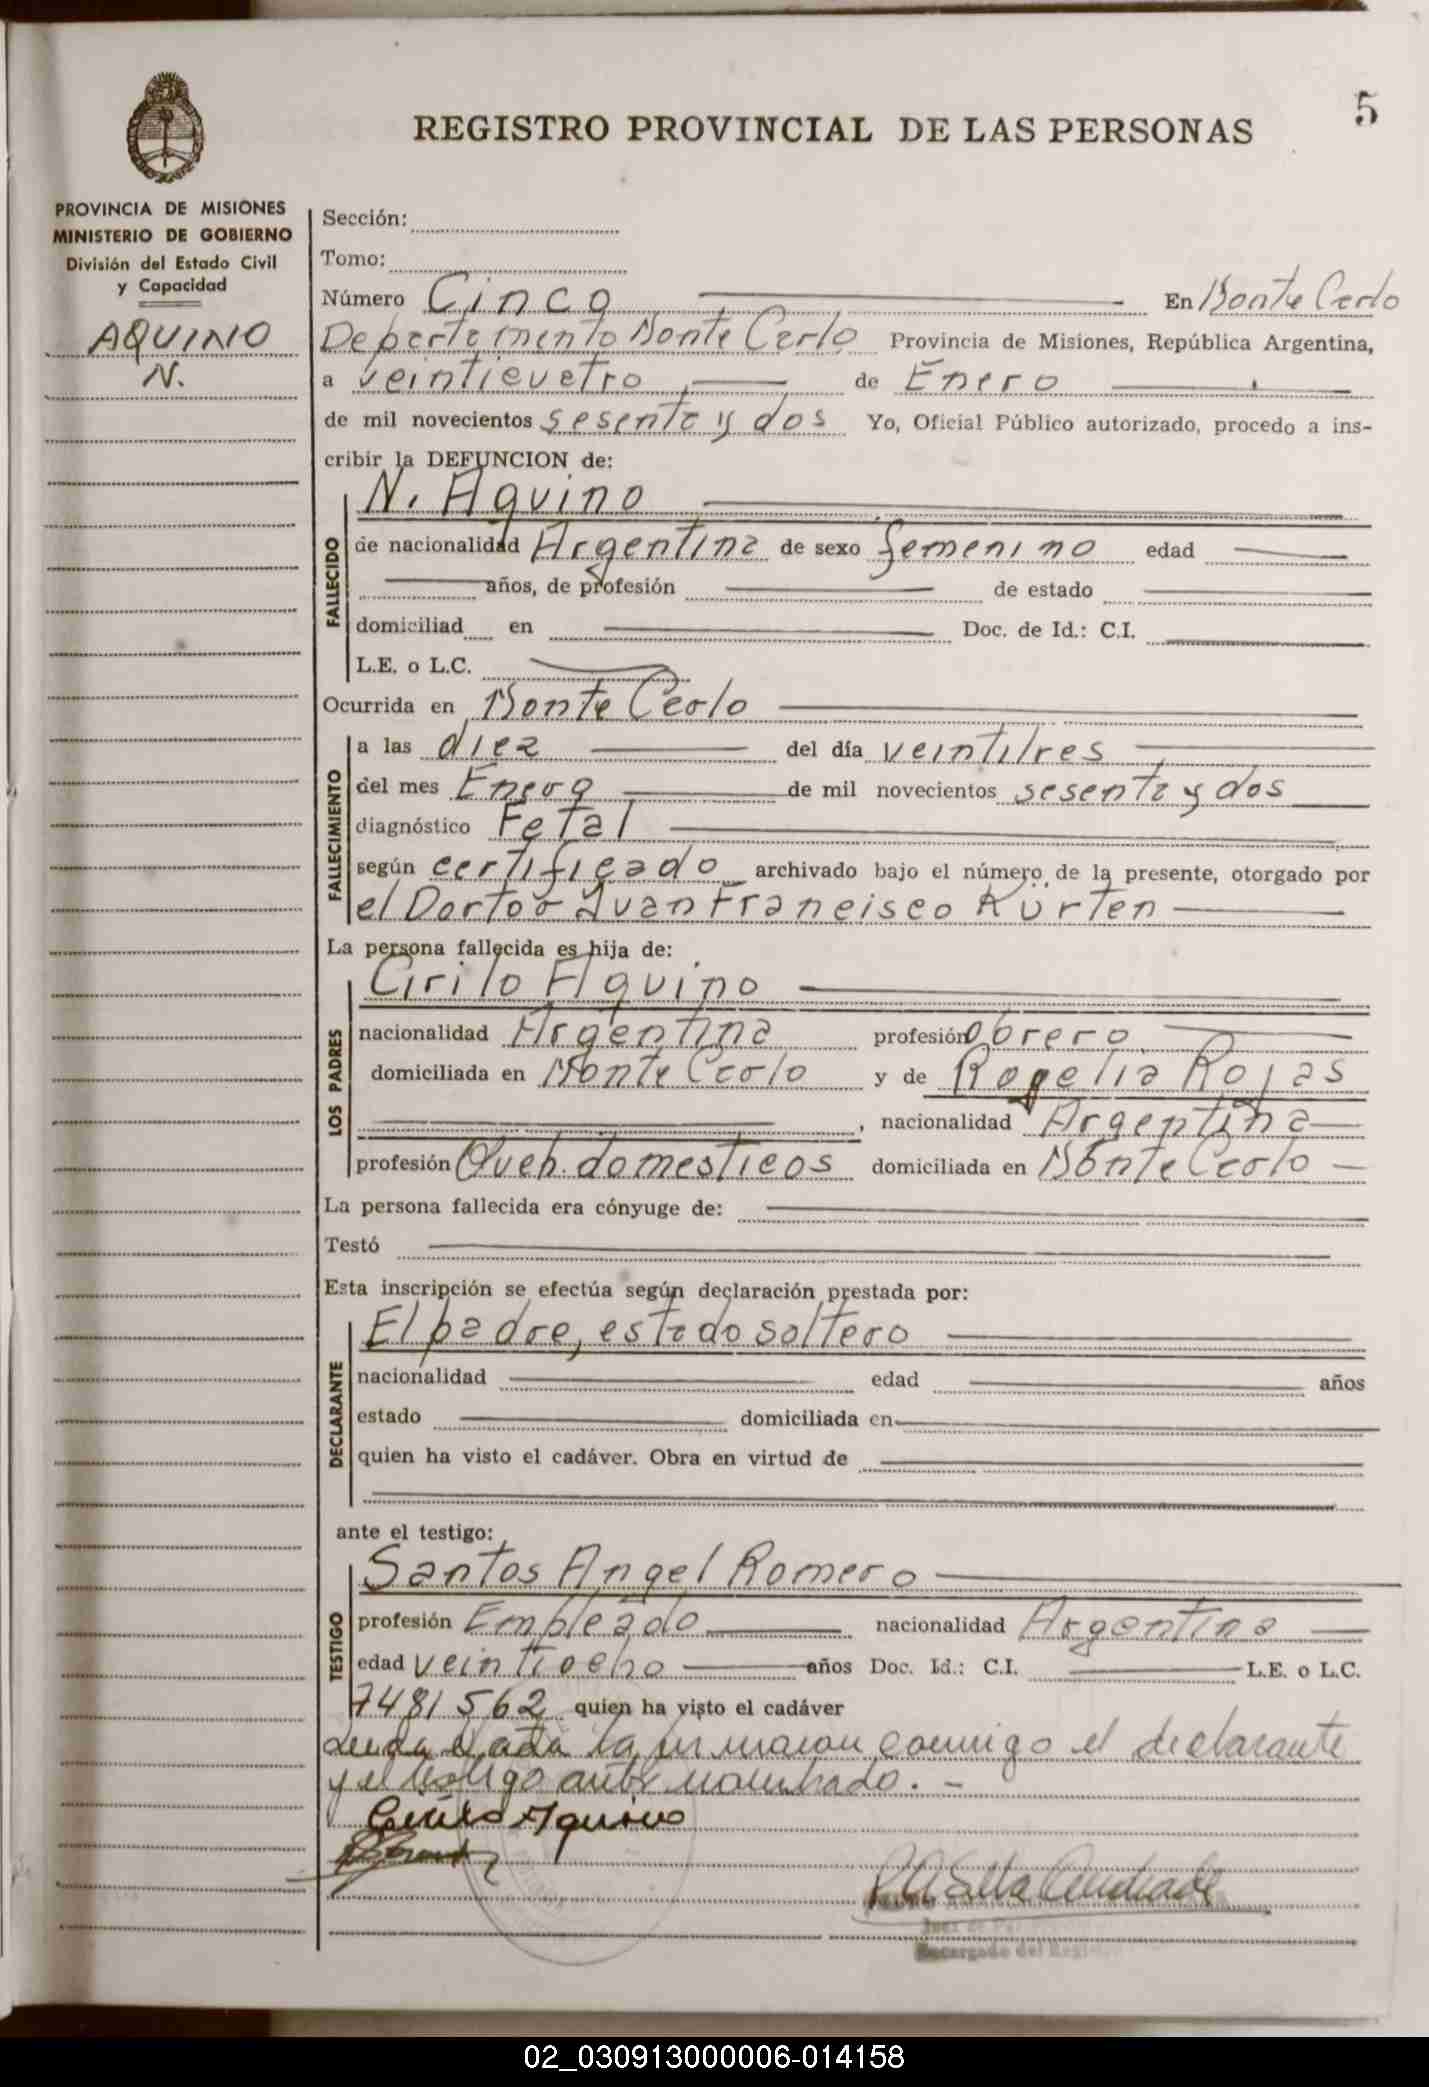 5
REGISTRO PROVINCIAL DE LAS PERSONAS
PROVINCIA DE MISIONES
MINISTERIO DE GOBIERNO
División del Estado Civil
y Capacidad
AQUINO
N.
Sección:
Tomo:
Número Cinco En Monte Carlo
Departamento Monte Carlo Provincia de Misiones, República Argentina,
a veinticuatro de Enero
de mil novecientos sesenta y dos Yo, Oficial Público autorizado, procedo a ins-
cribir la DEFUNCION de:
FALLECIDO
N. Aquino
de nacionalidad Argentina de sexo femenino edad
años, de profesión de estado
domiciliad en Doc. de Id.: C.I.
L.E. o L.C.
Ocurrida en Monte Carlo
FALLECIMIENTO
a las diez del día veintitres
del mes Enero de mil novecientos sesenta y dos
diagnóstico Fetal
según certificado archivado bajo el número de la presente, otorgado por
el Doctor Juan Francisco Kürten
La persona fallecida es hija de:
LOS PADRES
Cirilo Aquino
nacionalidad Argentina profesión Obrero
domiciliada en Monte Carlo y de Rogelia Rojas
, nacionalidad Argentina
profesión Queh. domesticos domiciliada en Monte Carlo
La persona fallecida era cónyuge de:
Testó
Esta inscripción se efectúa según declaración prestada por:
DECLARANTE
El padre, estado soltero
nacionalidad edad años
estado domiciliada en
quien ha visto el cadáver. Obra en virtud de
ante el testigo:
TESTIGO
Santos Angel Romero
profesión Empleado nacionalidad Argentina
edad veintiocho años Doc. Id.: C.I. L.E. o L.C.
7481562 quien ha visto el cadáver
Leida el acta la firmaron conmigo el declarante
y el testigo antes nombrado. -
Cirilo Aquino
Encargado del Registro
02_030913000006-014158